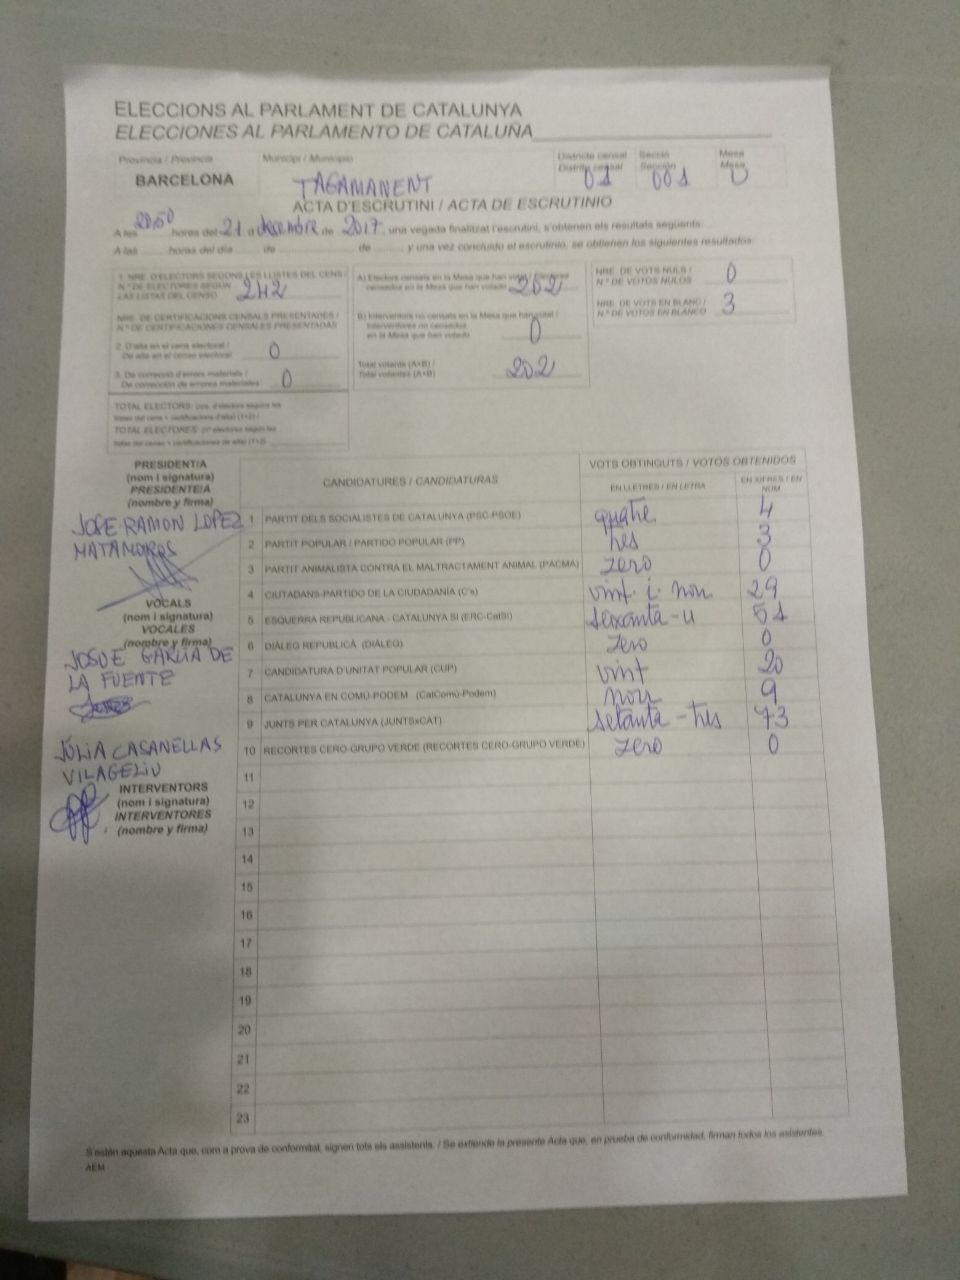 ELECCIONS AL PARLAMENT DE CATALUNYA
ELECCIONES AL PARLAMENTO DE CATALUÑA
Província / Provincia
BARCELONA
Municipi / Municipio
TAGAMANENT
Districte censal
Distrito censal
01
Secció
Sección
001
Mesa
Mesa
U
ACTA D'ESCRUTINI / ACTA DE ESCRUTINIO
A les 20:50 hores del 21 d desembre de 2017, una vegada finalitzat l'escrutini, s'obtenen els resultats següents:
A las horas del día de de y una vez concluido el escrutinio, se obtienen los siguientes resultados:
1. NRE. D'ELECTORS SEGONS LES LLISTES DEL CENS /
N.º DE ELECTORES SEGÚN
LAS LISTAS DEL CENSO 242
NRE. DE CERTIFICACIONS CENSALS PRESENTADES /
N.º DE CERTIFICACIONES CENSALES PRESENTADAS
2. D'alta en el cens electoral /
De alta en el censo electoral 0
3. De correcció d'errors materials /
De corrección de errores materiales 0
TOTAL ELECTORS: (nre. d'electors segons les
llistes del cens + certificacions d'alta) (1+2) /
TOTAL ELECTORES: (nº electores según las
listas del censo + certificaciones de alta) (1+2)
A) Electors censats en la Mesa que han votat / Electores
censados en la Mesa que han votado 202
B) Interventors no censats en la Mesa que han votat /
Interventores no censados
en la Mesa que han votado 0
Total votants (A+B) /
Total votantes (A+B) 202
NRE. DE VOTS NULS /
N.º DE VOTOS NULOS 0
NRE. DE VOTS EN BLANC /
N.º DE VOTOS EN BLANCO 3
PRESIDENT/A
(nom i signatura)
PRESIDENTE/A
(nombre y firma)
JOSE RAMON LOPEZ
MATAMOROS
VOCALS
(nom i signatura)
VOCALES
(nombre y firma)
JOSUE GARCIA DE
LA FUENTE
JÚLIA CASANELLAS
VILAGELIU
INTERVENTORS
(nom i signatura)
INTERVENTORES
(nombre y firma)
CANDIDATURES / CANDIDATURAS
VOTS OBTINGUTS / VOTOS OBTENIDOS
EN LLETRES / EN LETRA
EN XIFRES / EN NÚM
1 PARTIT DELS SOCIALISTES DE CATALUNYA (PSC-PSOE) quatre 4
2 PARTIT POPULAR / PARTIDO POPULAR (PP) tres 3
3 PARTIT ANIMALISTA CONTRA EL MALTRACTAMENT ANIMAL (PACMA) zero 0
4 CIUTADANS-PARTIDO DE LA CIUDADANÍA (C's) vint-i-nou 29
5 ESQUERRA REPUBLICANA - CATALUNYA SÍ (ERC-CatSí) seixanta-u 61
6 DIÀLEG REPUBLICÀ (DIÀLEG) zero 0
7 CANDIDATURA D'UNITAT POPULAR (CUP) vint 20
8 CATALUNYA EN COMÚ-PODEM (CatComú-Podem) nou 9
9 JUNTS PER CATALUNYA (JUNTSxCAT) setanta-tres 73
10 RECORTES CERO-GRUPO VERDE (RECORTES CERO-GRUPO VERDE) zero 0
11
12
13
14
15
16
17
18
19
20
21
22
23
S'estén aquesta Acta que, com a prova de conformitat, signen tots els assistents. / Se extiende la presente Acta que, en prueba de conformidad, firman todos los asistentes.
AEM